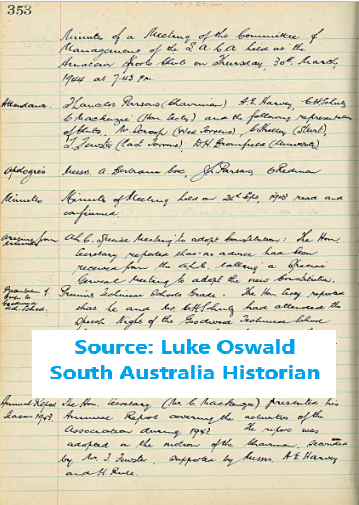 353
Minutes of a Meeting of the Committee of
Management of the S.A.C.A held at the
Amateur Sports Club on Thursday, 30th March,
1944 at 7.45 pm.
Attendance. Parsons (Chairman) A E Harvey, C H Schultz
C Mackenzie (Hon Secty) and the following representatives
of Clubs. Mr (West Torrens), C (Sturt),
(East Torrens), (University)
Apologies Messrs. A. Bertram Cox, Parsons, C Redman
Minutes Minutes of Meeting held on 21st Sept, 1943 read and
confirmed.
Arising from
Minutes Special Meeting to adopt Constitution: The Hon.
Secretary reported that no advice had been
received from the calling a Special
General Meeting to adopt the new Constitution.
Premier Technical Schools Grade. The Hon Secty reported
that he and Mr. C H Schultz had attended the
Speech Night of the Goodwood Technical School
Source: Luke Oswald
South Australia Historian
Annual Report The Hon. Secretary (Mr C. Mackenzie) presented his
Season 1943. Annual Report covering the activities of the
Association during 1943. The report was
adopted on the motion of the Chairman, seconded
by Mr. supported by Messrs. A E Harvey
and H. Rice.